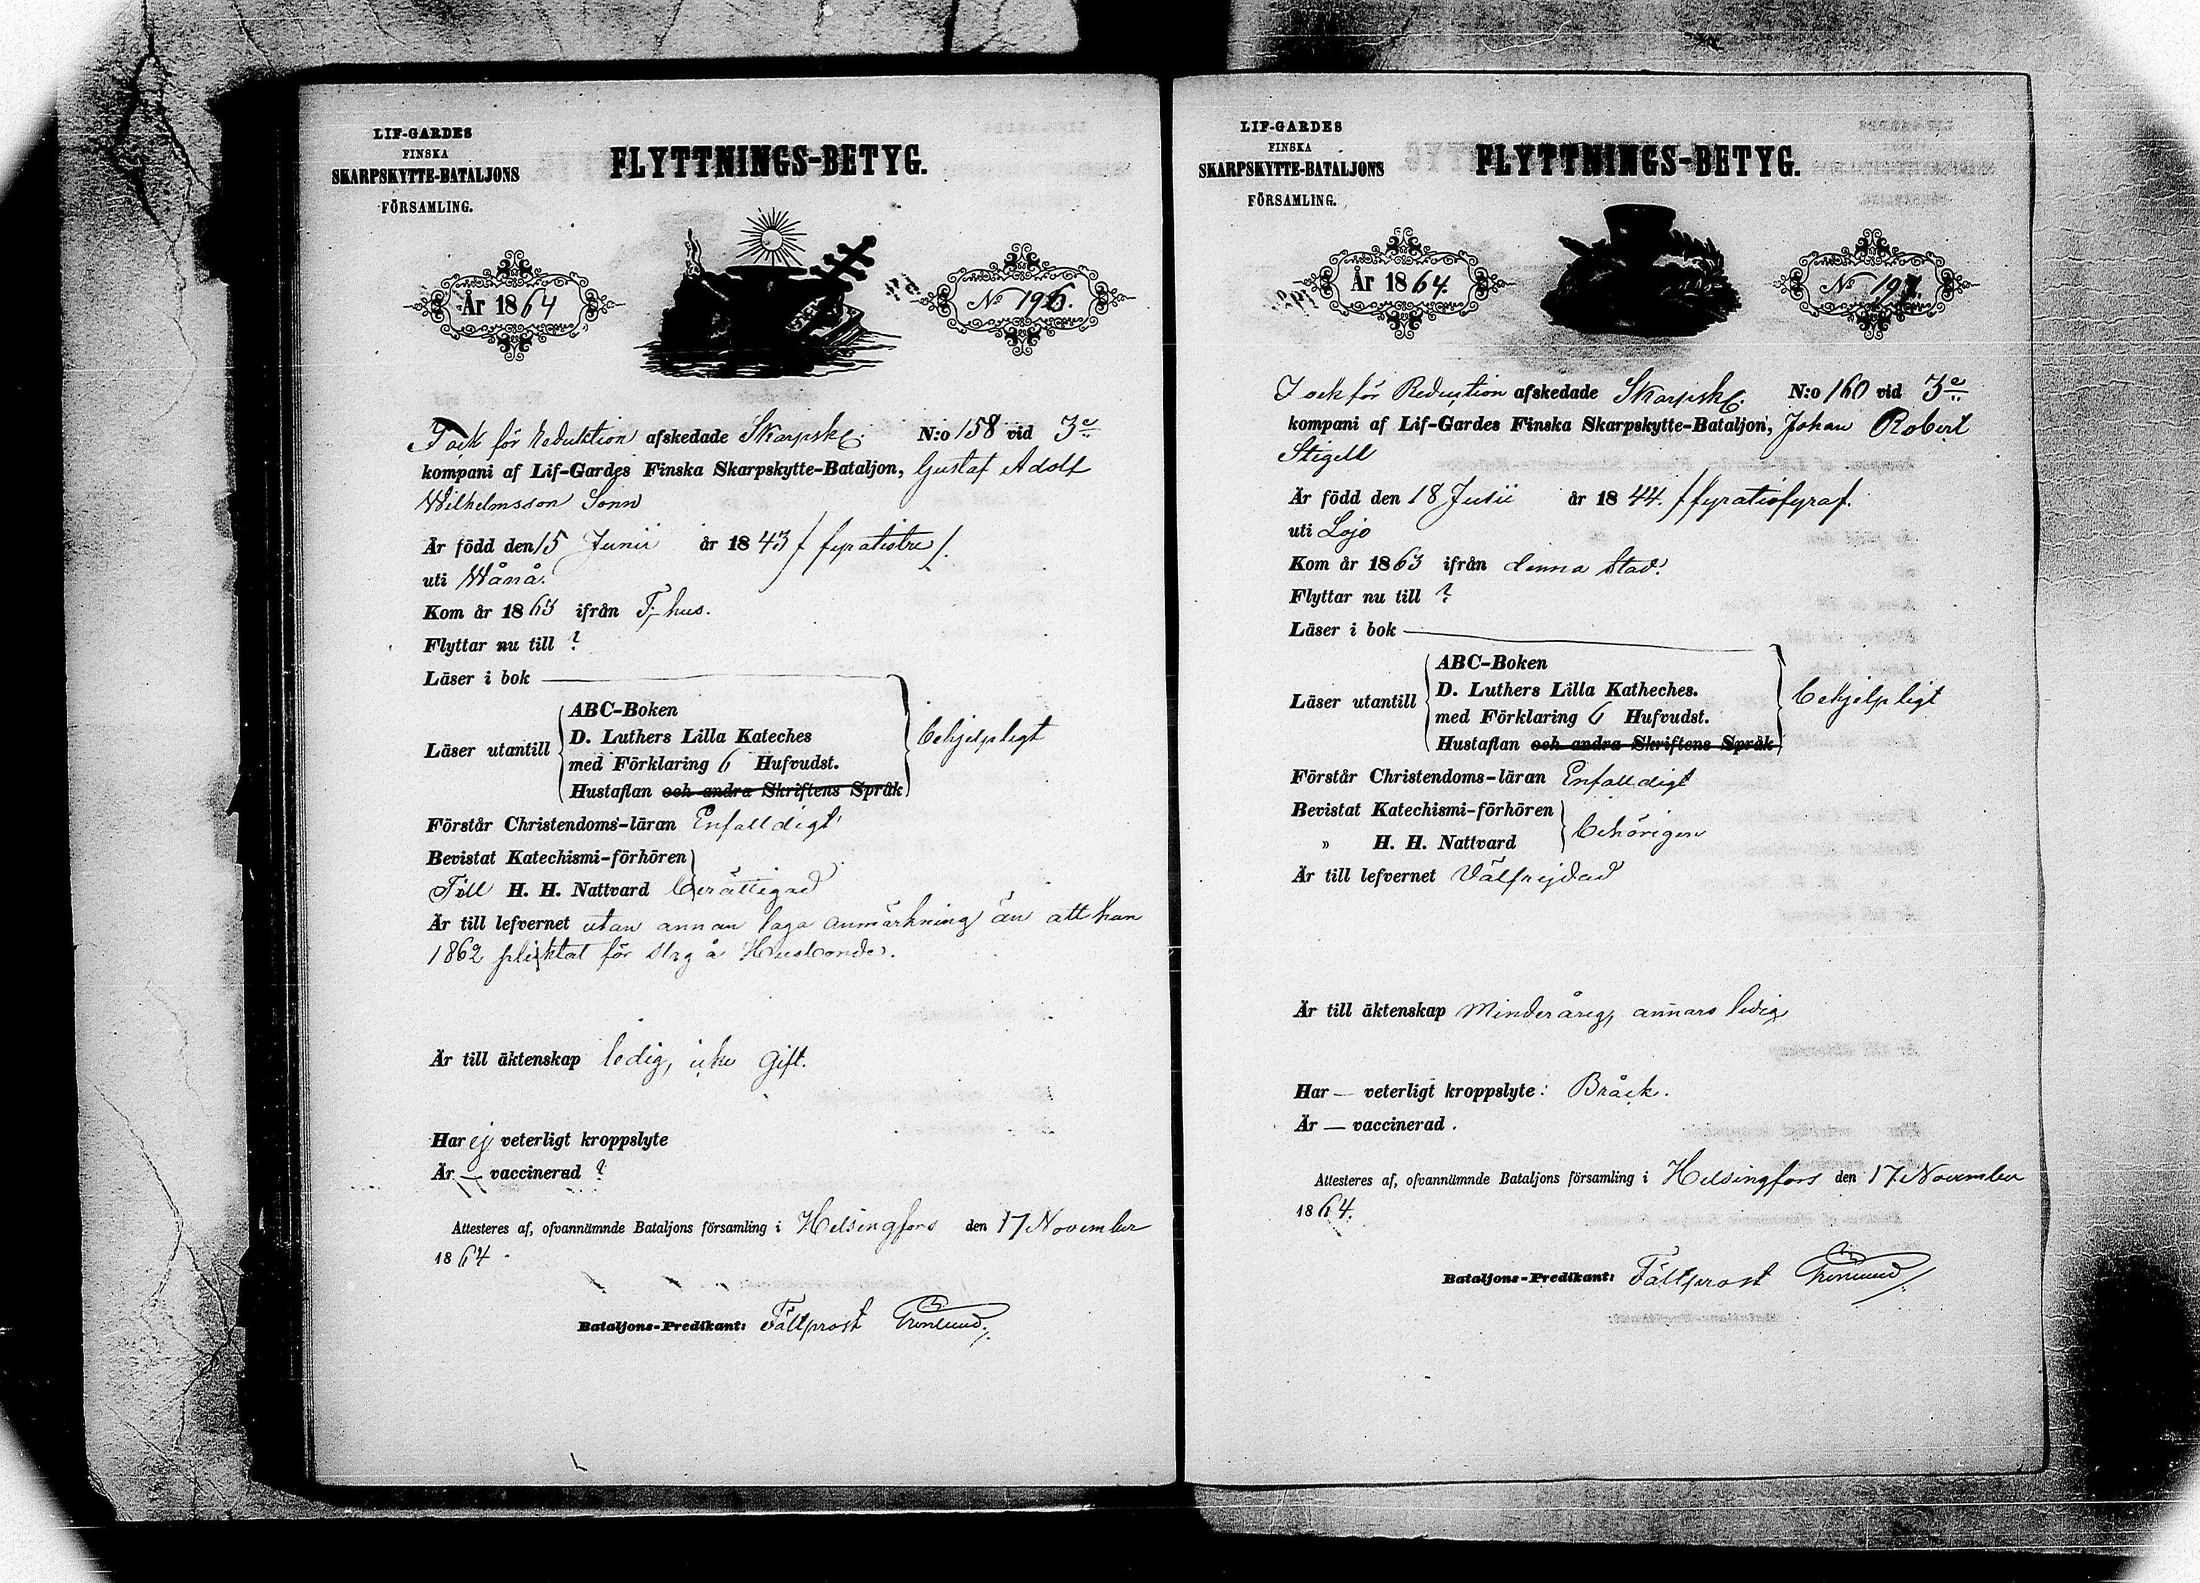 LIF-GARDES
FINSKA
SKARPSKYTTE-BATALJONS
FÖRSAMLING.
FLYTTNINGS-BETYG.
År 1864
No 196.
I och för Reduktion afskedade Skarpsk. N:o 158 vid 3e
kompani af Lif-Gardes Finska Skarpskytte-Bataljon, Gustaf Adolf
Wilhelmsson Sonn
Är född den 15 Junii år 1843 / fyratiotre /.
uti Wånå.
Kom år 1863 ifrån T-hus.
Flyttar nu till ?
Läser i bok
Läser utantill
ABC-Boken
D. Luthers Lilla Kateches
med Förklaring 6 Hufvudst.
Hustaflan och andra Skriftens Språk
behjelpligt
Förstår Christendoms-läran Enfalldigt
Bevistat Katechismi-förhören
Till H. H. Nattvard berättigad
Är till lefvernet utan annan laga anmärkning än att han
1862 pliktat för slag å Husbonde.
Är till äktenskap ledig, icke gift.
Har ej veterligt kroppslyte
Är — vaccinerad ?
Attesteres af, ofvannämnde Bataljons församling i Helsingfors den 17 November
1864.
Bataljons-Predikant: Fältprost Grönlund
LIF-GARDES
FINSKA
SKARPSKYTTE-BATALJONS
FÖRSAMLING.
FLYTTNINGS-BETYG.
År 1864.
No 197.
I och för Reduction afskedade Skarpsk. N:o 160 vid 3e
kompani af Lif-Gardes Finska Skarpskytte-Bataljon, Johan Robert
Stigell
Är född den 18 Julii år 1844. / fyratiofyra /.
uti Lojo
Kom år 1863 ifrån denna stad.
Flyttar nu till ?
Läser i bok
Läser utantill
ABC-Boken
D. Luthers Lilla Katheches.
med Förklaring 6 Hufvudst.
Hustaflan och andra Skriftens Språk
behjelpligt
Förstår Christendoms-läran Enfalldigt
Bevistat Katechismi-förhören
» H. H. Nattvard
behörigen
Är till lefvernet Välfrejdad
Är till äktenskap Minderårig, annars ledig
Har — veterligt kroppslyte: Bråck.
Är — vaccinerad.
Attesteres af, ofvannämnde Bataljons församling i Helsingfors den 17 November
1864.
Bataljons-Predikant: Fältprost Grönlund